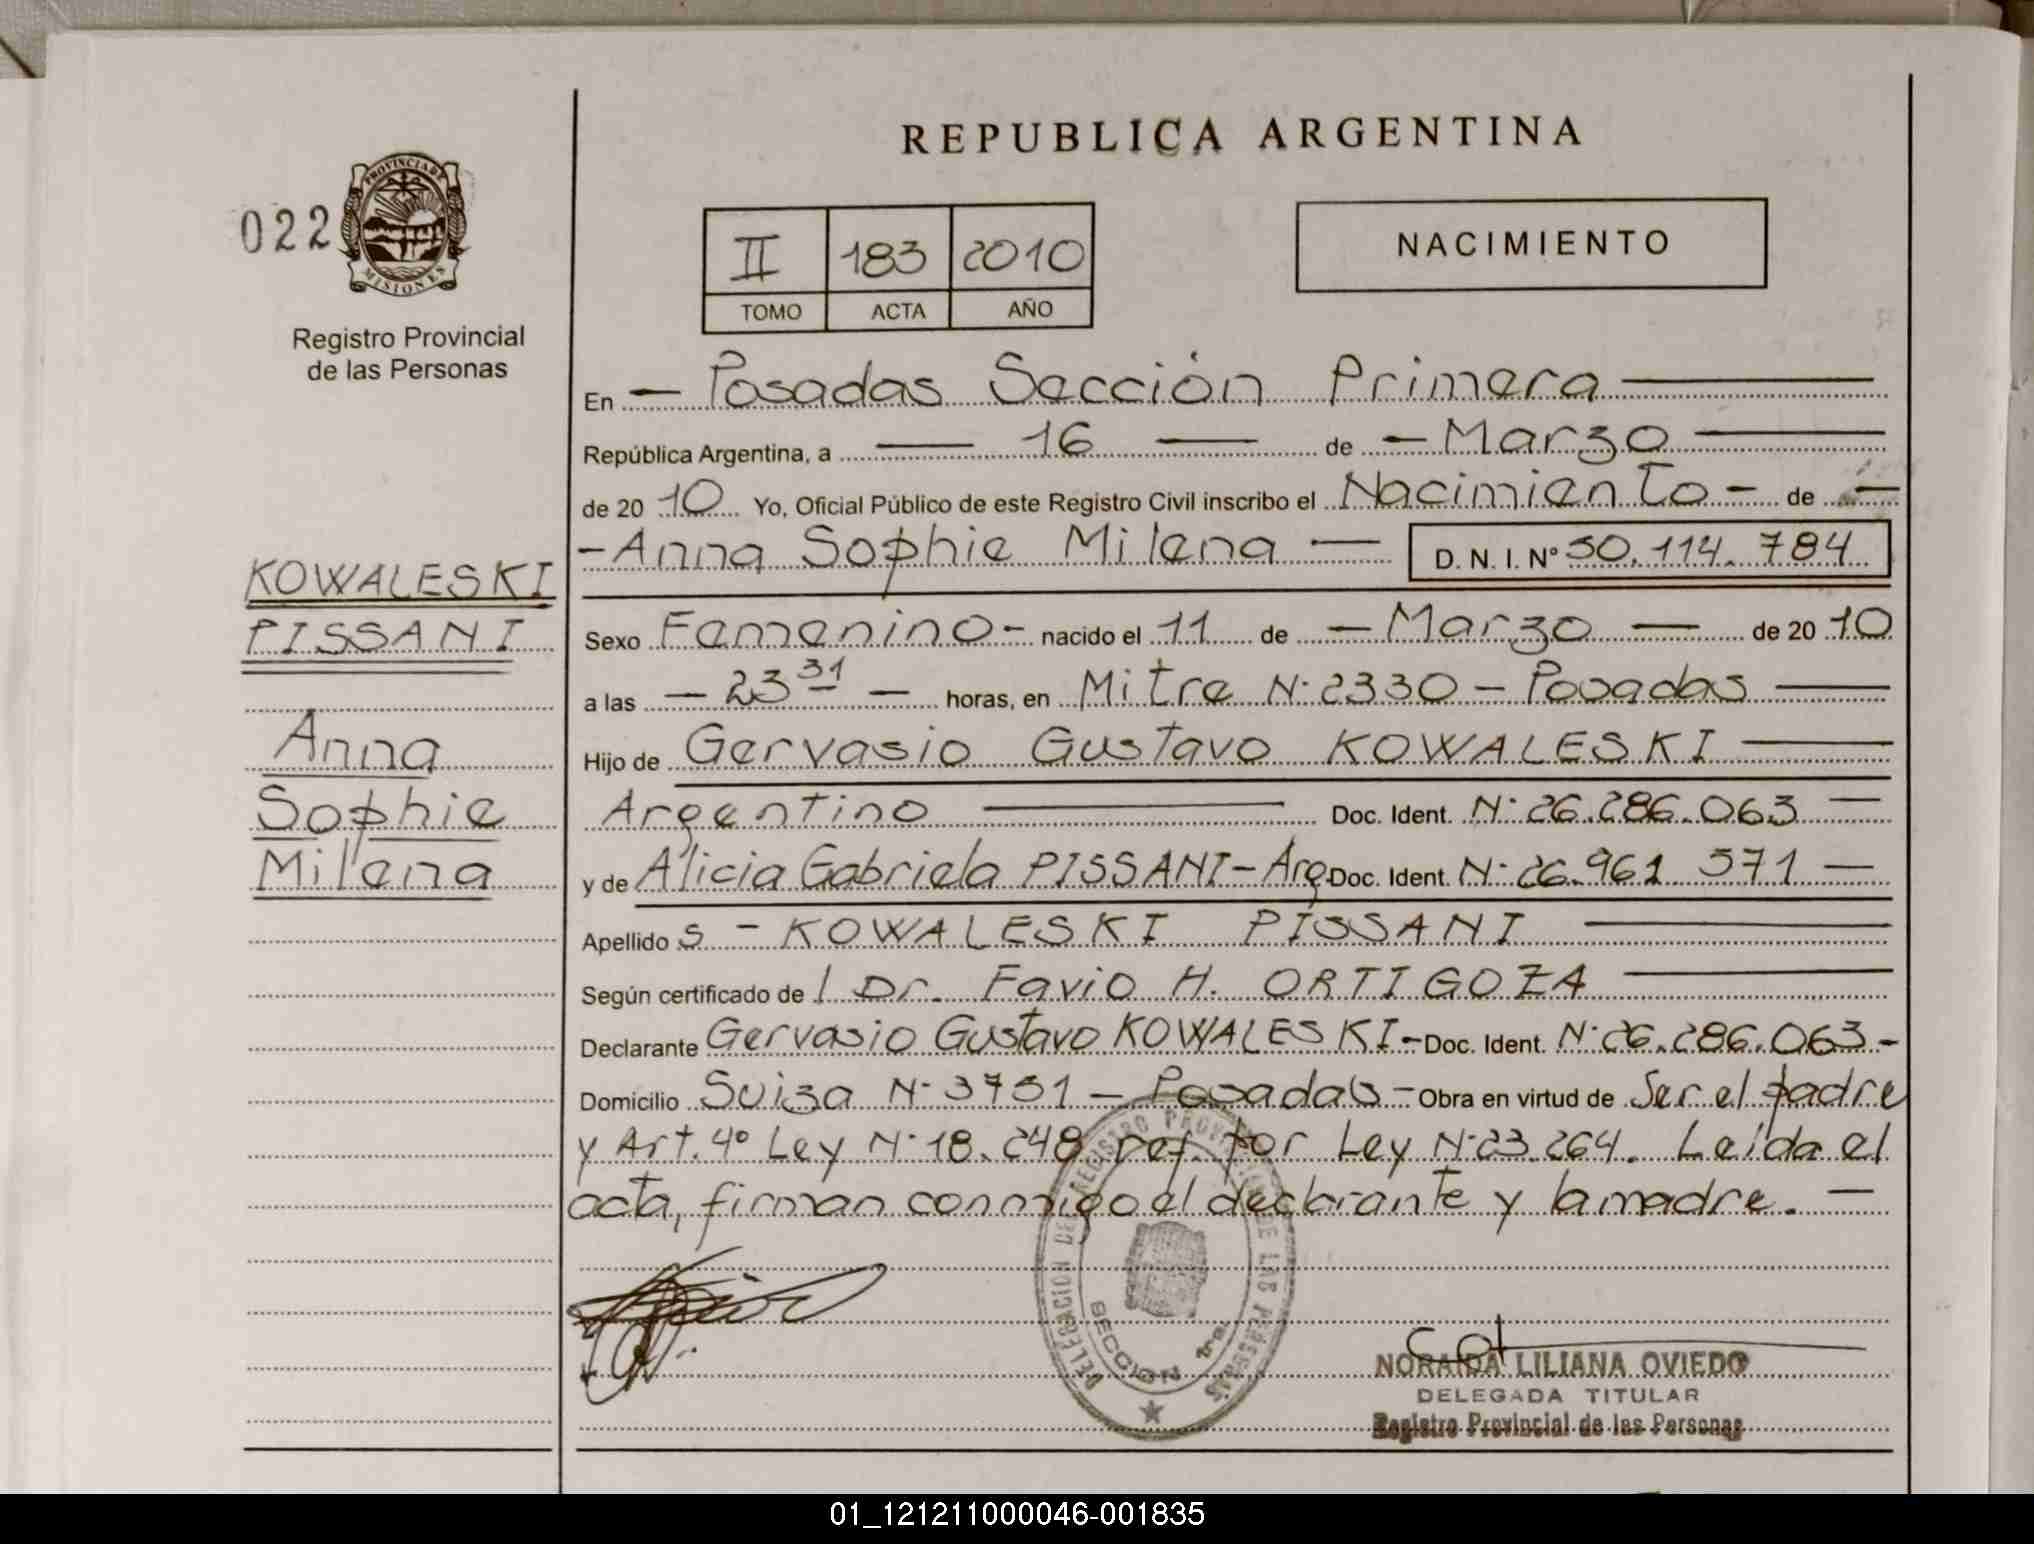 REPUBLICA ARGENTINA
022
PROVINCIA DE
MISIONES
Registro Provincial
de las Personas
II 183 2010
TOMO ACTA AÑO
NACIMIENTO
En — Posadas Sección Primera —
República Argentina, a — 16 — de — Marzo —
de 20 10 Yo, Oficial Público de este Registro Civil inscribo el Nacimiento - de —
- Anna Sophie Milena — D. N. I. Nº 50.114.784
KOWALESKI
PISSANI
Anna
Sophie
Milena
Sexo Femenino - nacido el 11 de — Marzo — de 20 10
a las — 23 31 — horas, en Mitre Nº 2330 - Posadas —
Hijo de Gervasio Gustavo KOWALESKI —
Argentino — Doc. Ident. Nº 26.286.063 —
y de Alicia Gabriela PISSANI - Arg. Doc. Ident. Nº 26.961 571 —
Apellido s - KOWALESKI PISSANI —
Según certificado de l Dr. Favio H. ORTIGOZA —
Declarante Gervasio Gustavo KOWALESKI - Doc. Ident. Nº 26.286.063 -
Domicilio Suiza Nº 3751 - Posadas - Obra en virtud de Ser el padre
y Art. 4º Ley Nº 18.248 ref. por Ley Nº 23.264. Leída el
acta, firman conmigo el declarante y la madre. —
DELEGACION DEL REGISTRO PROVINCIAL DE LAS PERSONAS
SECCION 1ra.
NORAIDA LILIANA OVIEDO
DELEGADA TITULAR
Registro Provincial de las Personas
01_121211000046-001835